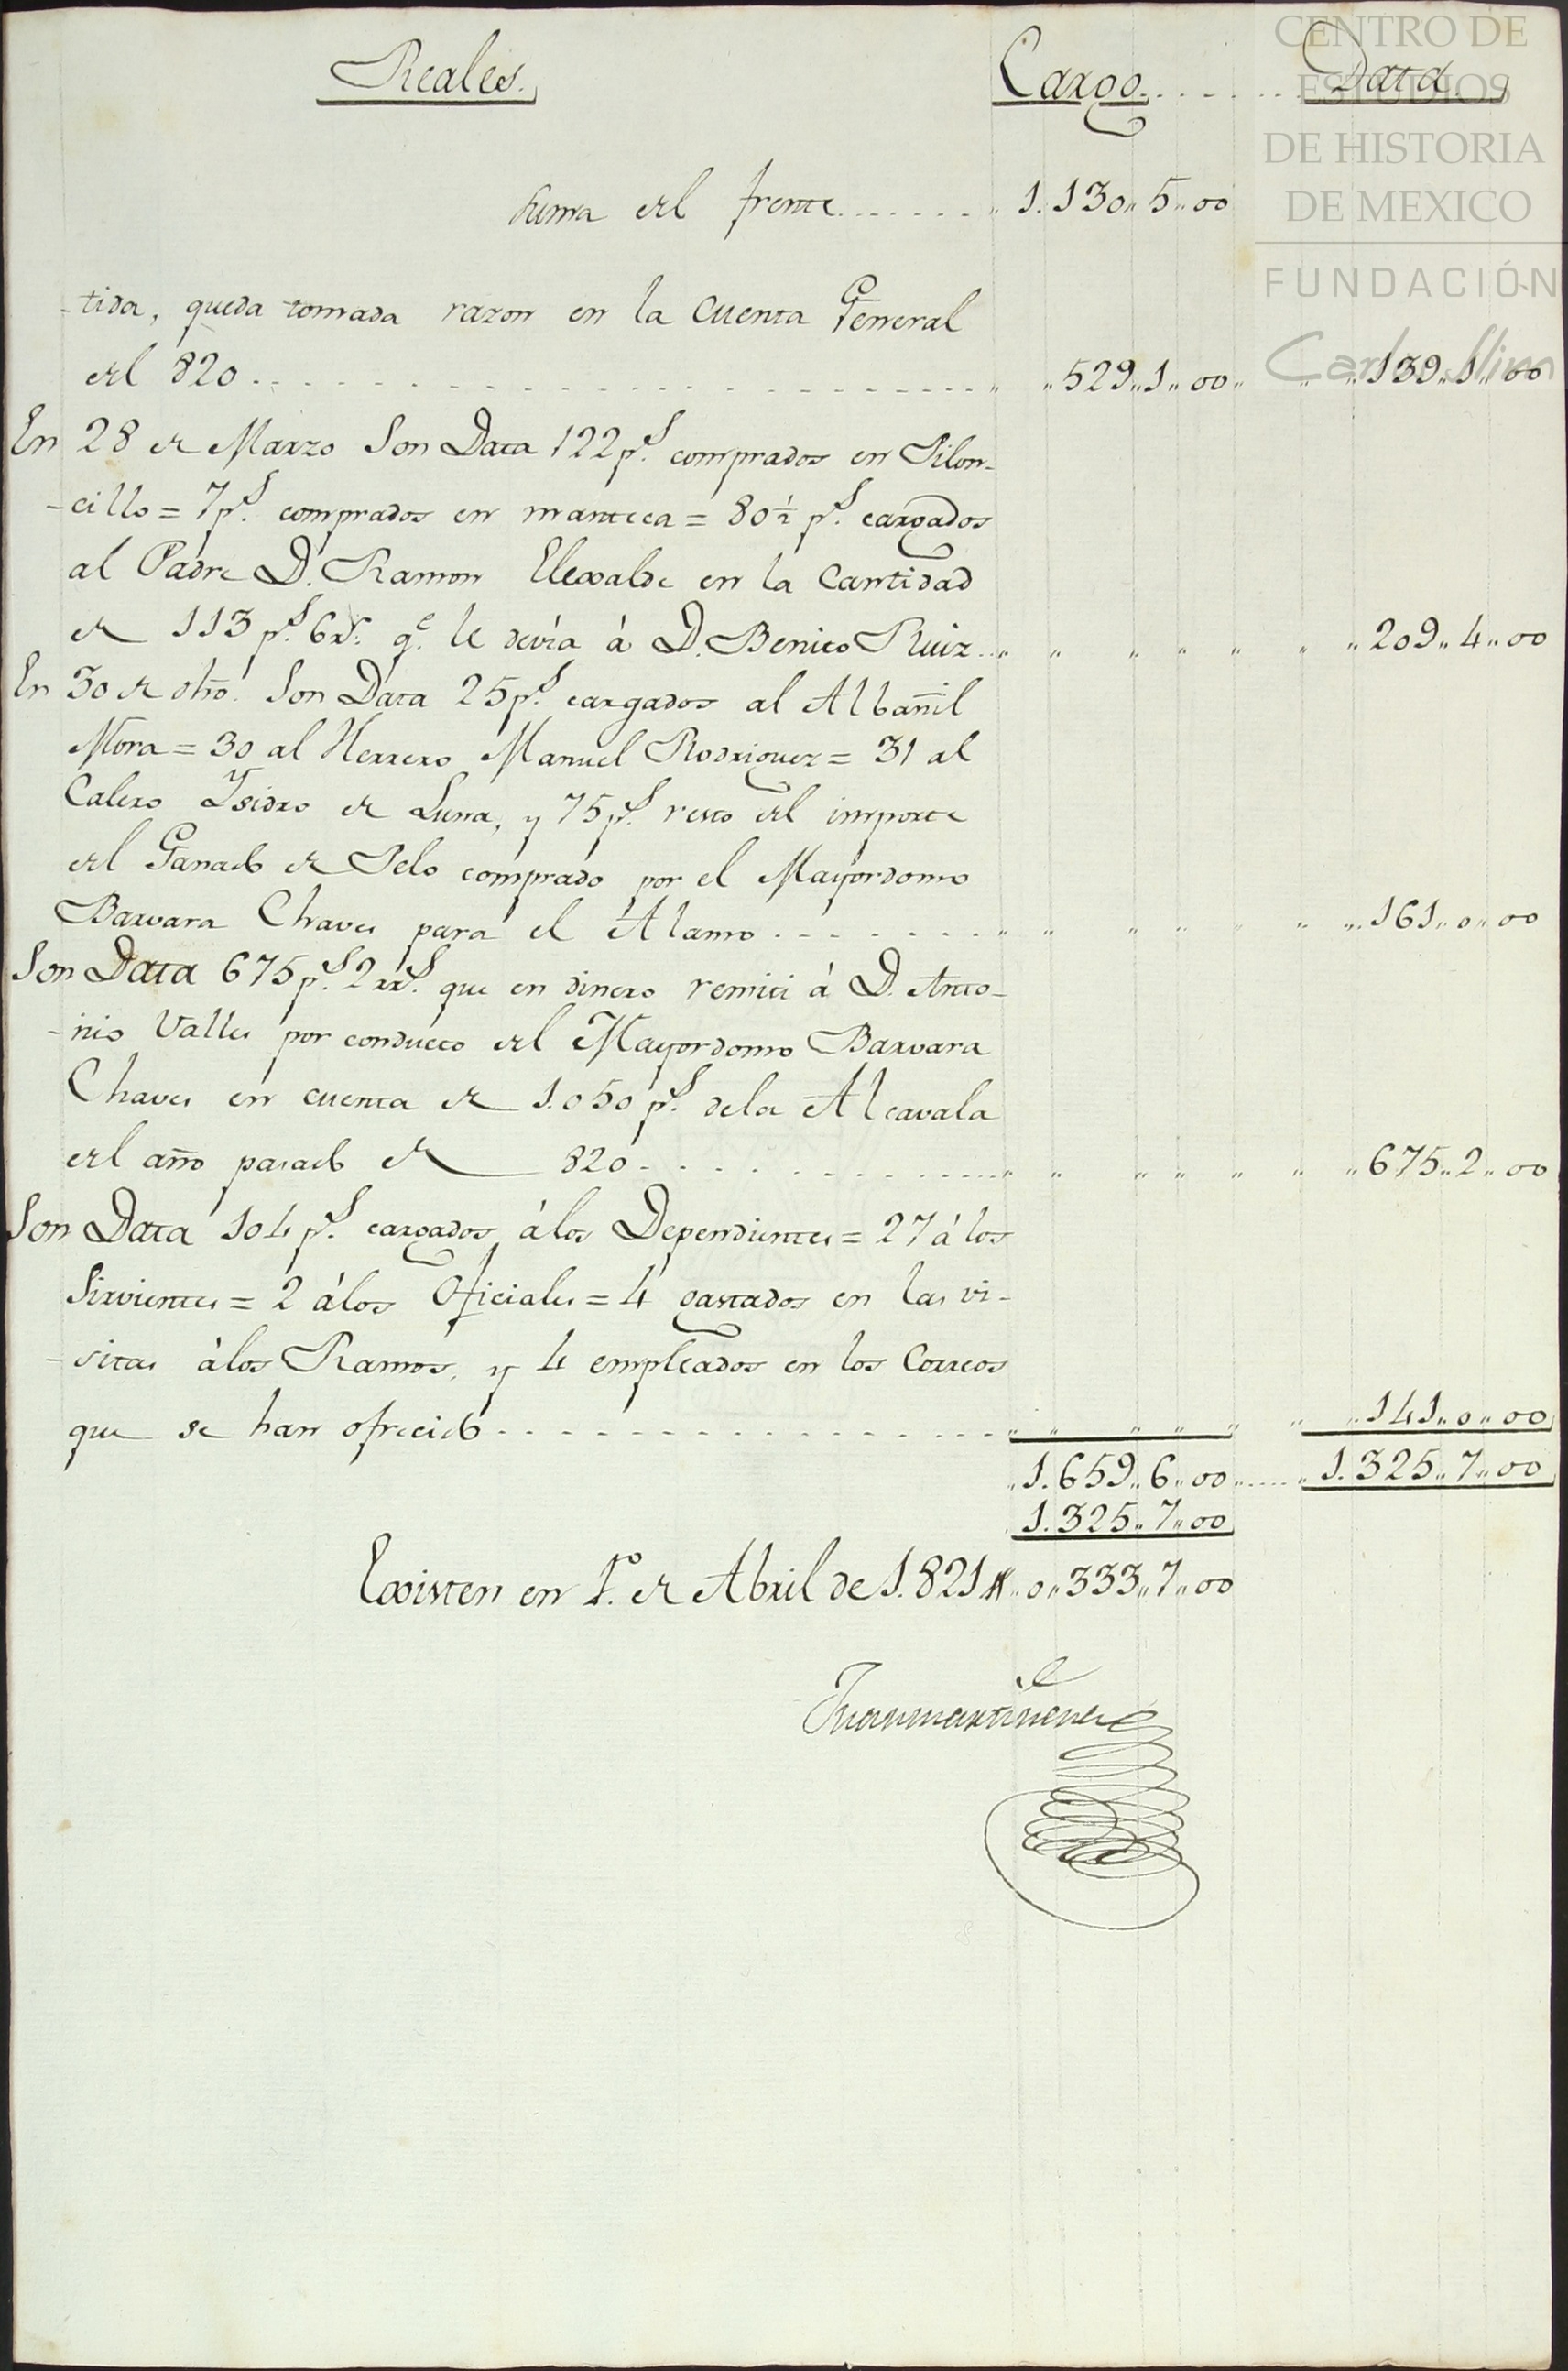 CENTRO DE
ESTUDIOS
DE HISTORIA
DE MEXICO
FUNDACIÓN
Carlos Slim
Reales. Cargo. Data.
Suma del frente 1.130,, 5,, 00
-tida, queda tomada razon en la Cuenta General
del 820 529,, 1,, 00 139,, 1,, 00
En 28 de Marzo Son Data 122 p.s comprados en Pilon-
-cillo = 7 p.s comprados en manteca = 80 ½ p.s cargados
al Padre D. Ramon Elexalde en la Cantidad
de 113 p.s 6 r.s q.e le devía á D. Benito Ruiz 209,, 4,, 00
En 30 de dho. Son Data 25 p.s cargados al Albañil
Mora = 30 al Herrero Manuel Rodriguez = 31 al
Calero Isidro de Luna, y 75 p.s resto del importe
del Ganado de Pelo comprado por el Mayordomo
Barvara Chaves para el Alamo 161,, 0,, 00
Son Data 675 p.s 2 rr.s que en dinero remiti á D. Anto-
-nio Valles por conducto del Mayordomo Barvara
Chaves en cuenta de 1.050 p.s dela Alcavala
del año pasado de 820 675,, 2,, 00
Son Data 104 p.s cargados álos Dependientes = 27 á los
Sirvientes = 2 álos Oficiales = 4 gastados en las vi-
-sitas álos Ramos, y 4 empleados en los Correos
que se han ofrecido 141,, 0,, 00
1.659,, 6,, 00 1.325,, 7,, 00
1.325,, 7,, 00
Existen en 1.o de Abril de 1.821 0,, 333,, 7,, 00
Juan martinena